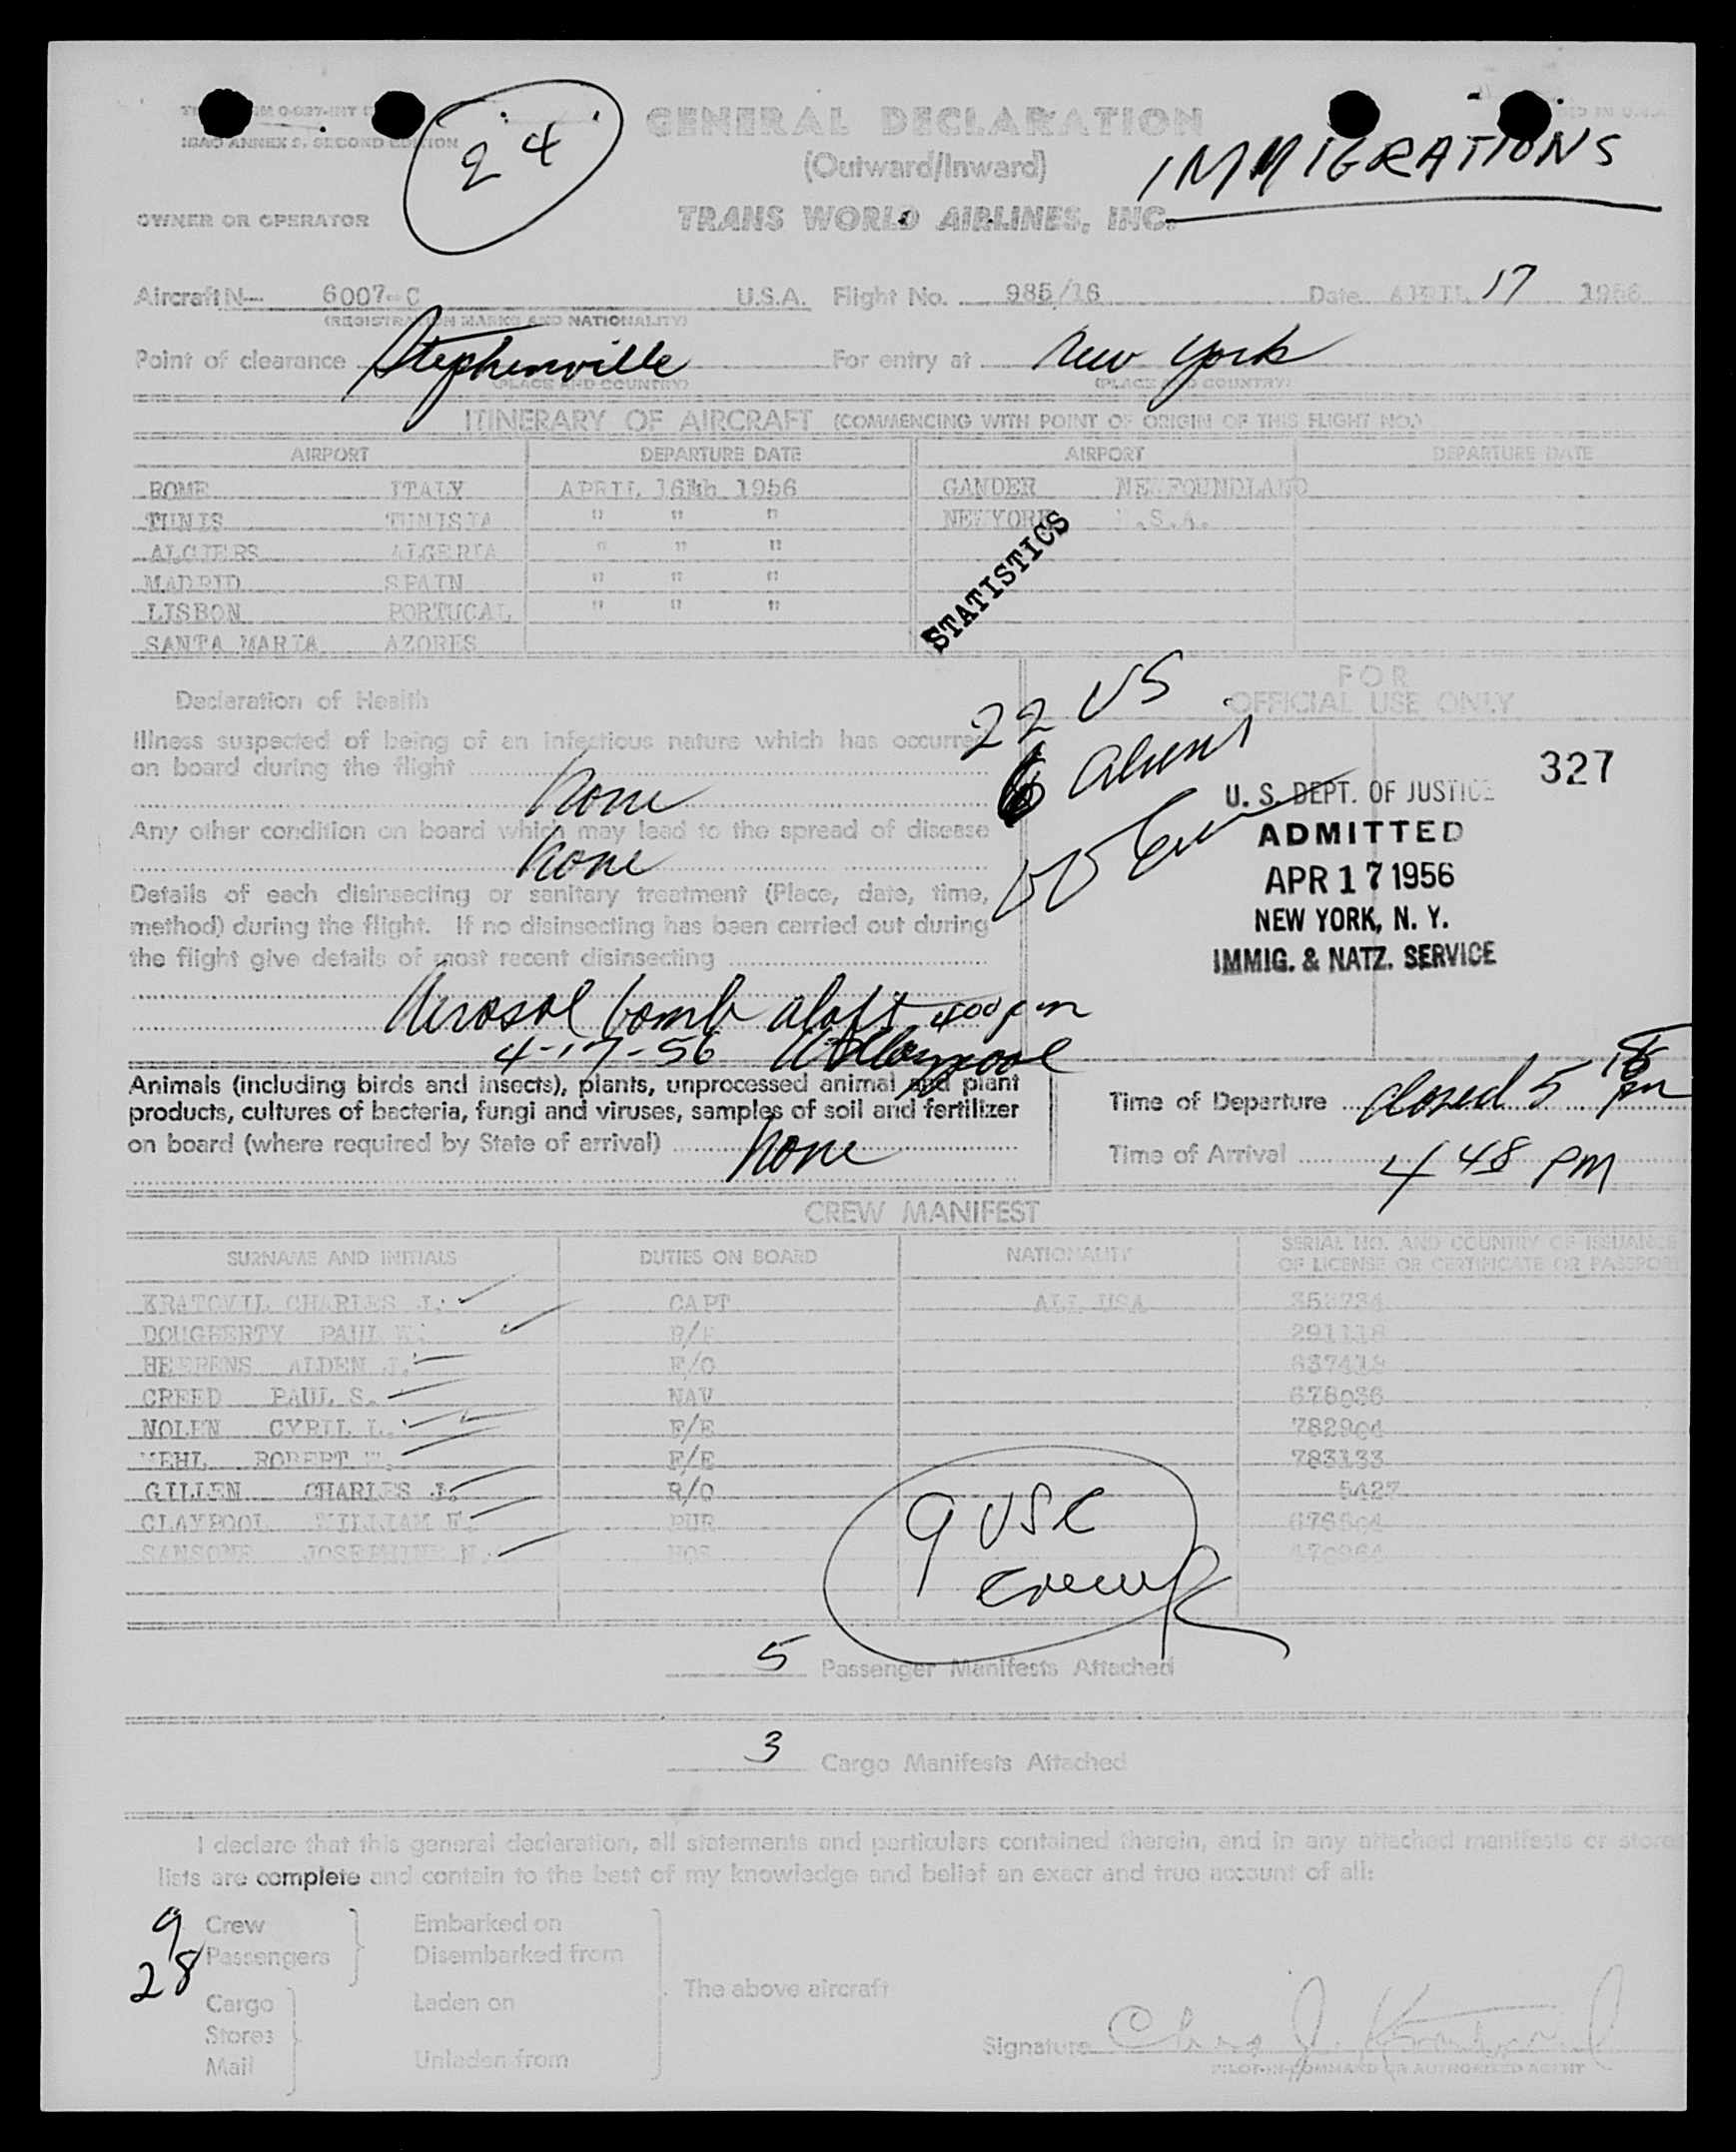 24
GENERAL DECLARATION
(Outward/Inward)
IMMIGRATIONS
ICAO ANNEX 9, SECOND EDITION
OWNER OR OPERATOR TRANS WORLD AIRLINES, INC.
Aircraft N— 6007-C U.S.A. Flight No. 985/16 Date APRIL 17 1956
(REGISTRATION MARKS AND NATIONALITY)
Point of clearance Stephenville For entry at New York
(PLACE AND COUNTRY) (PLACE AND COUNTRY)
ITINERARY OF AIRCRAFT (COMMENCING WITH POINT OF ORIGIN OF THIS FLIGHT NO.)
AIRPORT DEPARTURE DATE AIRPORT DEPARTURE DATE
ROME ITALY APRIL 16th 1956 GANDER NEWFOUNDLAND
TUNIS TUNISIA " " " NEWYORK U.S.A.
ALGIERS ALGERIA " " "
MADRID SPAIN " " "
LISBON PORTUGAL " " "
SANTA MARIA AZORES
STATISTICS
Declaration of Health
FOR
OFFICIAL USE ONLY
22 US
6 Aliens
Illness suspected of being of an infectious nature which has occurred
on board during the flight
None
Any other condition on board which may lead to the spread of disease
None
Details of each disinsecting or sanitary treatment (Place, date, time,
method) during the flight. If no disinsecting has been carried out during
the flight give details of most recent disinsecting
Aerosol bomb aloft 400 pm
4-17-56
327
U. S. DEPT. OF JUSTICE
ADMITTED
APR 17 1956
NEW YORK, N. Y.
IMMIG. & NATZ. SERVICE
Animals (including birds and insects), plants, unprocessed animal and plant
products, cultures of bacteria, fungi and viruses, samples of soil and fertilizer
on board (where required by State of arrival)
None
Time of Departure closed 5 18 pm
Time of Arrival 4 48 PM
CREW MANIFEST
SURNAME AND INITIALS DUTIES ON BOARD NATIONALITY SERIAL NO. AND COUNTRY OF ISSUANCE
OF LICENSE OR CERTIFICATE OR PASSPORT
KRATOVIL CHARLES J. CAPT ALL USA
DOUGHERTY PAUL 291118
HEERENS ALDEN J. F/O
CREED PAUL S. NAV 678036
NOLEN CYRIL L. F/E 782904
ROBERT F/E 783133
GILLEN CHARLES J. R/O 5427
CLAYPOOL WILLIAM PUR
SANSONE JOSEPHINE HOS
9 USC
crew
5 Passenger Manifests Attached
3 Cargo Manifests Attached
I declare that this general declaration, all statements and particulars contained therein, and in any attached manifests or stores
lists are complete and contain to the best of my knowledge and belief an exact and true account of all:
9 Crew Embarked on
28 Passengers Disembarked from
The above aircraft
Cargo Laden on
Stores
Mail Unladen from
Signature Chas J. Kratovil
PILOT-IN-COMMAND OR AUTHORIZED AGENT